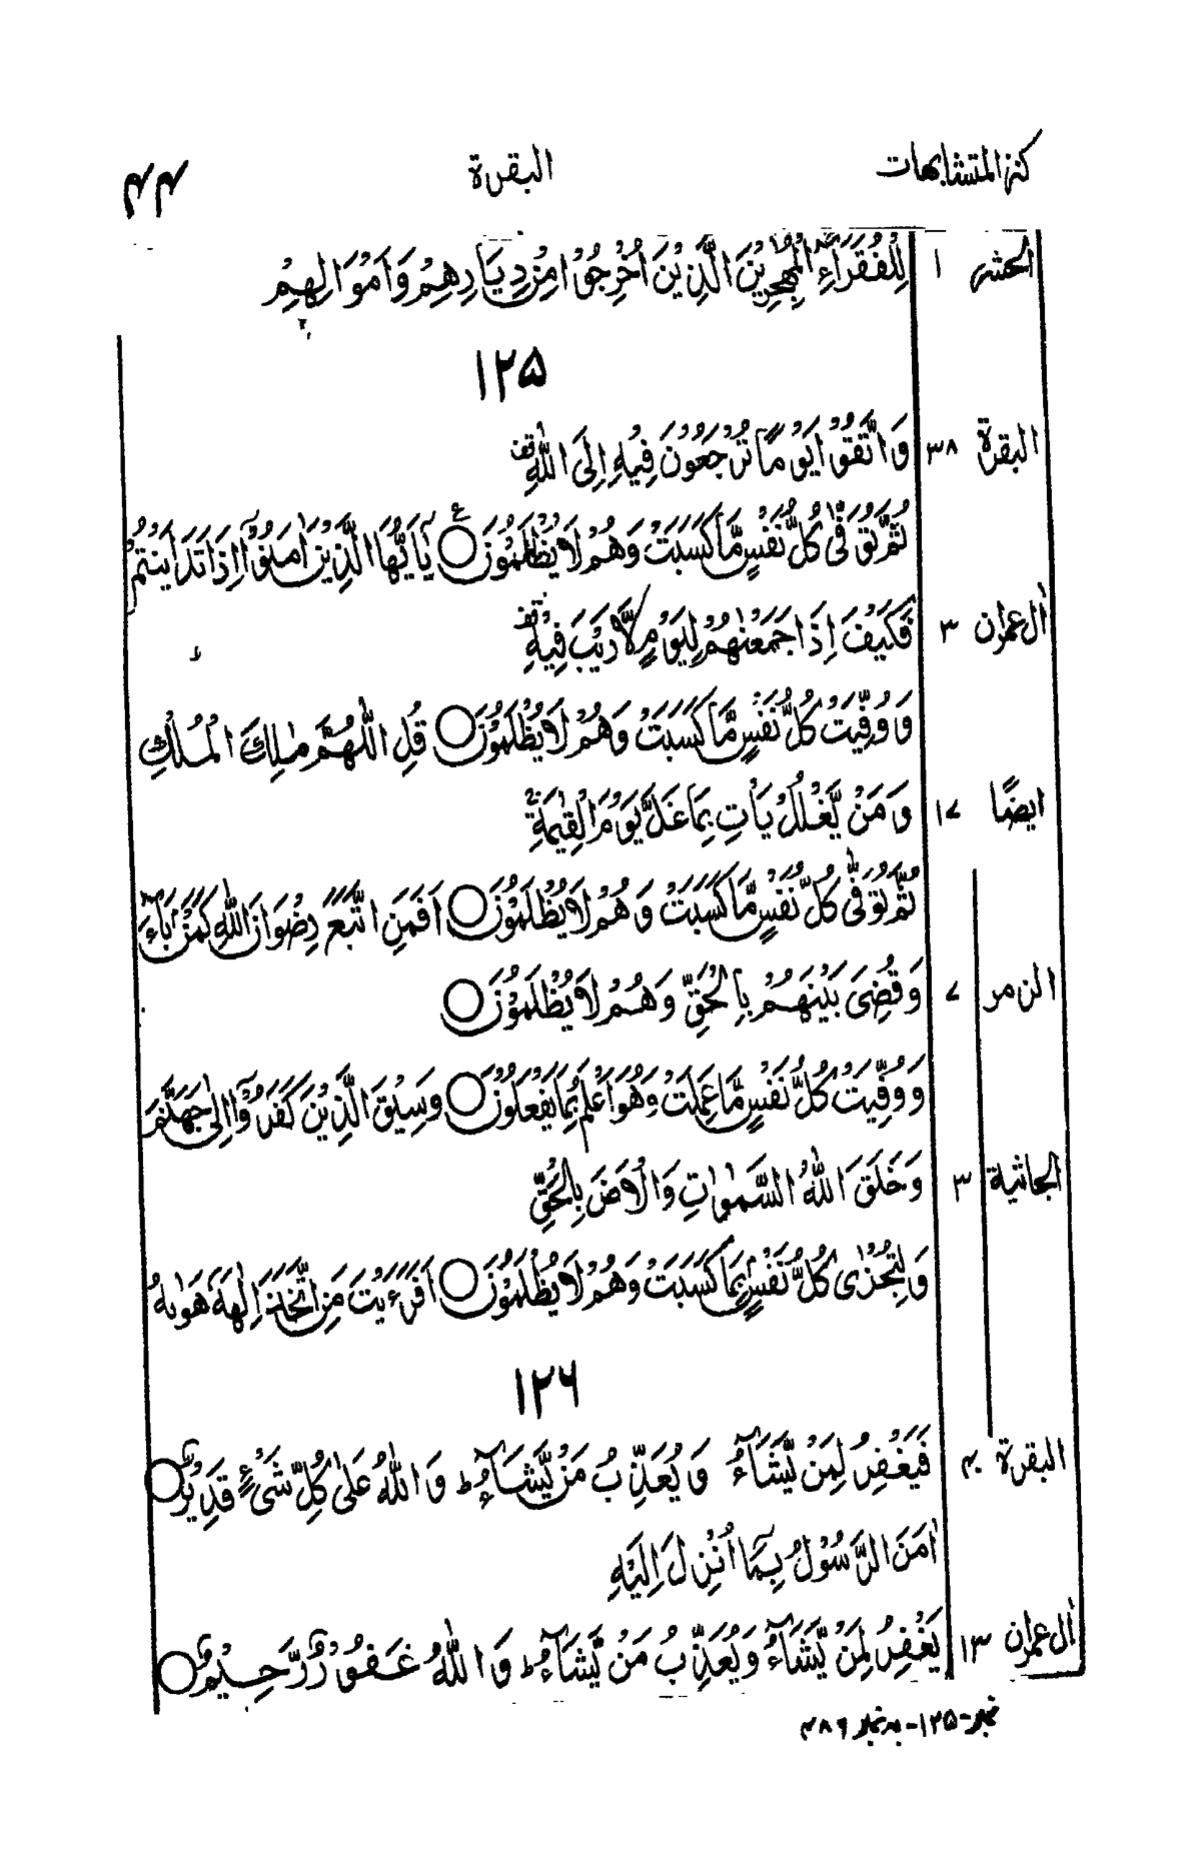 كنز المتشابهات البقرة ۴۴
الحشر ١ لِلْفُقَرَآءِ الْمُهٰجِرِيْنَ الَّذِيْنَ اُخْرِجُوْا مِنْ دِيَارِهِمْ وَاَمْوَالِهِمْ
١٢٥
البقرة ٣٨ وَاتَّقُوْا يَوْمًا تُرْجَعُوْنَ فِيْهِ اِلَى اللّٰهِ
ثُمَّ تُوَفّٰى كُلُّ نَفْسٍ مَّا كَسَبَتْ وَهُمْ لَا يُظْلَمُوْنَ ○ يٰٓاَيُّهَا الَّذِيْنَ اٰمَنُوْٓا اِذَا تَدَايَنْتُمْ
اٰل عمران ٣ فَكَيْفَ اِذَا جَمَعْنٰهُمْ لِيَوْمٍ لَّا رَيْبَ فِيْهِ
وَوُفِّيَتْ كُلُّ نَفْسٍ مَّا كَسَبَتْ وَهُمْ لَا يُظْلَمُوْنَ ○ قُلِ اللّٰهُمَّ مٰلِكَ الْمُلْكِ
ايضًا ١٧ وَمَنْ يَّغْلُلْ يَاْتِ بِمَا غَلَّ يَوْمَ الْقِيٰمَةِ
ثُمَّ تُوَفّٰى كُلُّ نَفْسٍ مَّا كَسَبَتْ وَهُمْ لَا يُظْلَمُوْنَ ○ اَفَمَنِ اتَّبَعَ رِضْوَانَ اللّٰهِ كَمَنْۢ بَآءَ
الزمر ٧ وَقُضِىَ بَيْنَهُمْ بِالْحَقِّ وَهُمْ لَا يُظْلَمُوْنَ ○
وَوُفِّيَتْ كُلُّ نَفْسٍ مَّا عَمِلَتْ وَهُوَ اَعْلَمُ بِمَا يَفْعَلُوْنَ ○ وَسِيْقَ الَّذِيْنَ كَفَرُوْٓا اِلٰى جَهَنَّمَ
الجاثية ٣ وَخَلَقَ اللّٰهُ السَّمٰوٰتِ وَالْاَرْضَ بِالْحَقِّ
وَلِتُجْزٰى كُلُّ نَفْسٍۢ بِمَا كَسَبَتْ وَهُمْ لَا يُظْلَمُوْنَ ○ اَفَرَءَيْتَ مَنِ اتَّخَذَ اِلٰهَهٗ هَوٰىهُ
١٢٦
البقرة ۴٠ فَيَغْفِرُ لِمَنْ يَّشَآءُ وَيُعَذِّبُ مَنْ يَّشَآءُ ؕ وَاللّٰهُ عَلٰى كُلِّ شَىْءٍ قَدِيْرٌ ○
اٰمَنَ الرَّسُوْلُ بِمَآ اُنْزِلَ اِلَيْهِ
اٰل عمران ١٣ يَغْفِرُ لِمَنْ يَّشَآءُ وَيُعَذِّبُ مَنْ يَّشَآءُ ؕ وَاللّٰهُ غَفُوْرٌ رَّحِيْمٌ ○
نمبر-١٢٥-به نمبر ۴٨٦